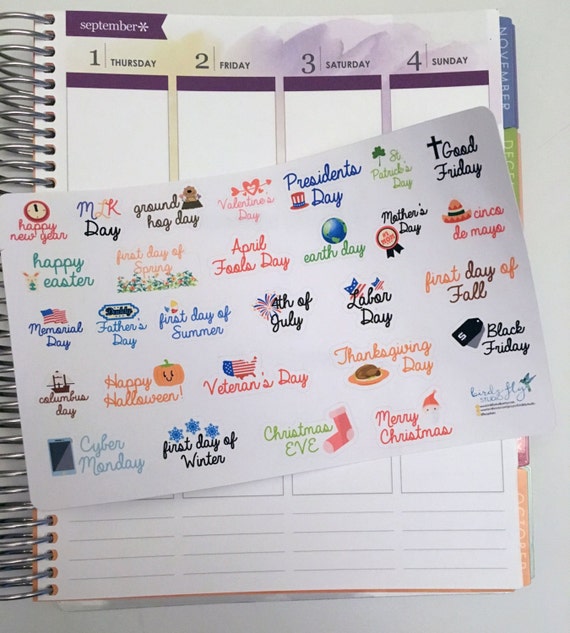 september*
1 THURSDAY
2 FRIDAY
3 SATURDAY
4 SUNDAY
NOVEMBER
happy
new year
MLK
Day
ground
hog day
Valentine's
Day
Presidents
Day
St
Patrick's
Day
Good
Friday
happy
easter
first day of
Spring
April
Fools Day
earth day
Mother's
Day
cinco
de mayo
Memorial
Day
Daddy
Father's
Day
first day of
Summer
4th of
July
Labor
Day
first day of
Fall
columbus
day
Happy
Halloween!
Veteran's Day
Thanksgiving
Day
Black
Friday
Cyber
Monday
first day of
Winter
Christmas
EVE
Merry
Christmas
birdzfly
OCTOBER